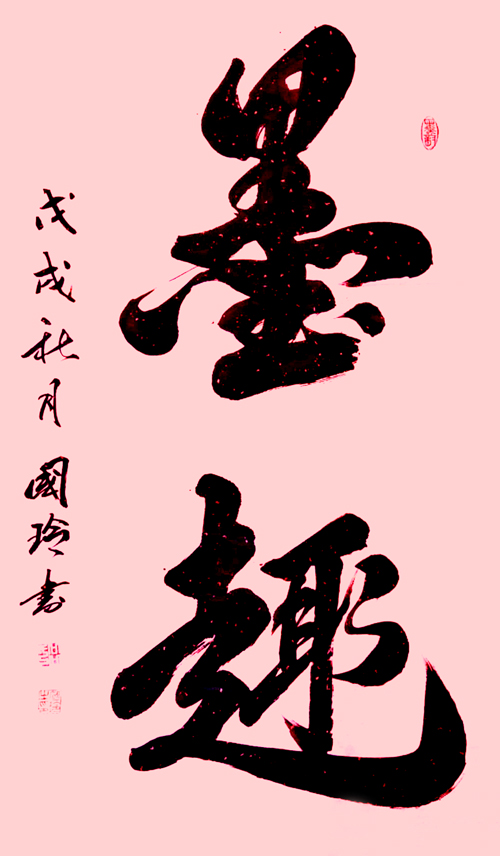 墨趣
戊戌秋月國玲書